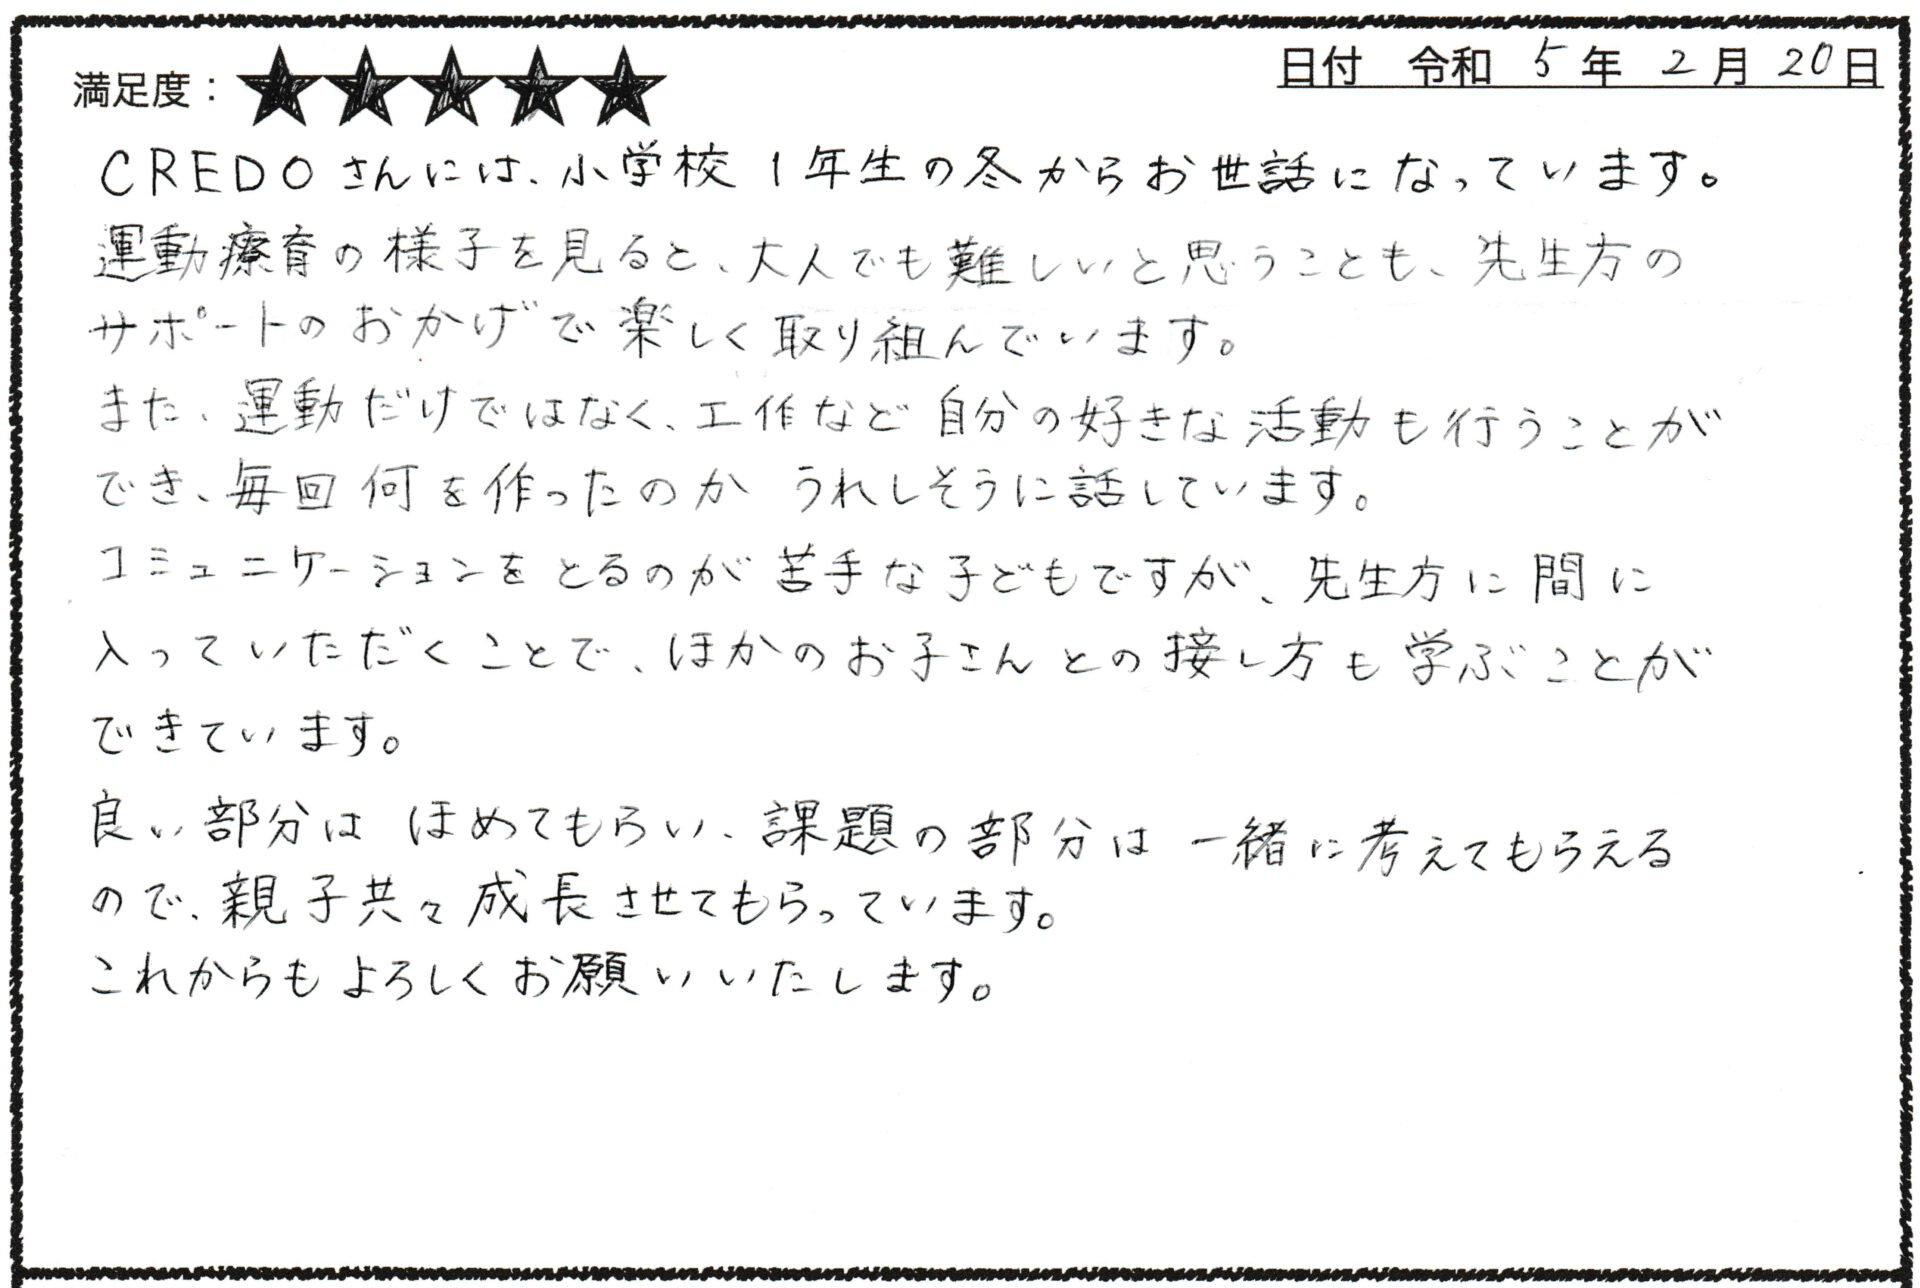 満足度：★★★★★ 日付 令和 5 年 2 月 20 日
CREDOさんには、小学校1年生の冬からお世話になっています。
運動療育の様子を見ると、大人でも難しいと思うことも、先生方の
サポートのおかげで楽しく取り組んでいます。
また、運動だけではなく、工作など自分の好きな活動も行うことが
でき、毎回何を作ったのか うれしそうに話しています。
コミュニケーションをとるのが苦手な子どもですが、先生方に間に
入っていただくことで、ほかのお子さんとの接し方も学ぶことが
できています。
良い部分は ほめてもらい、課題の部分は一緒に考えてもらえる
ので、親子共々成長させてもらっています。
これからもよろしくお願いいたします。